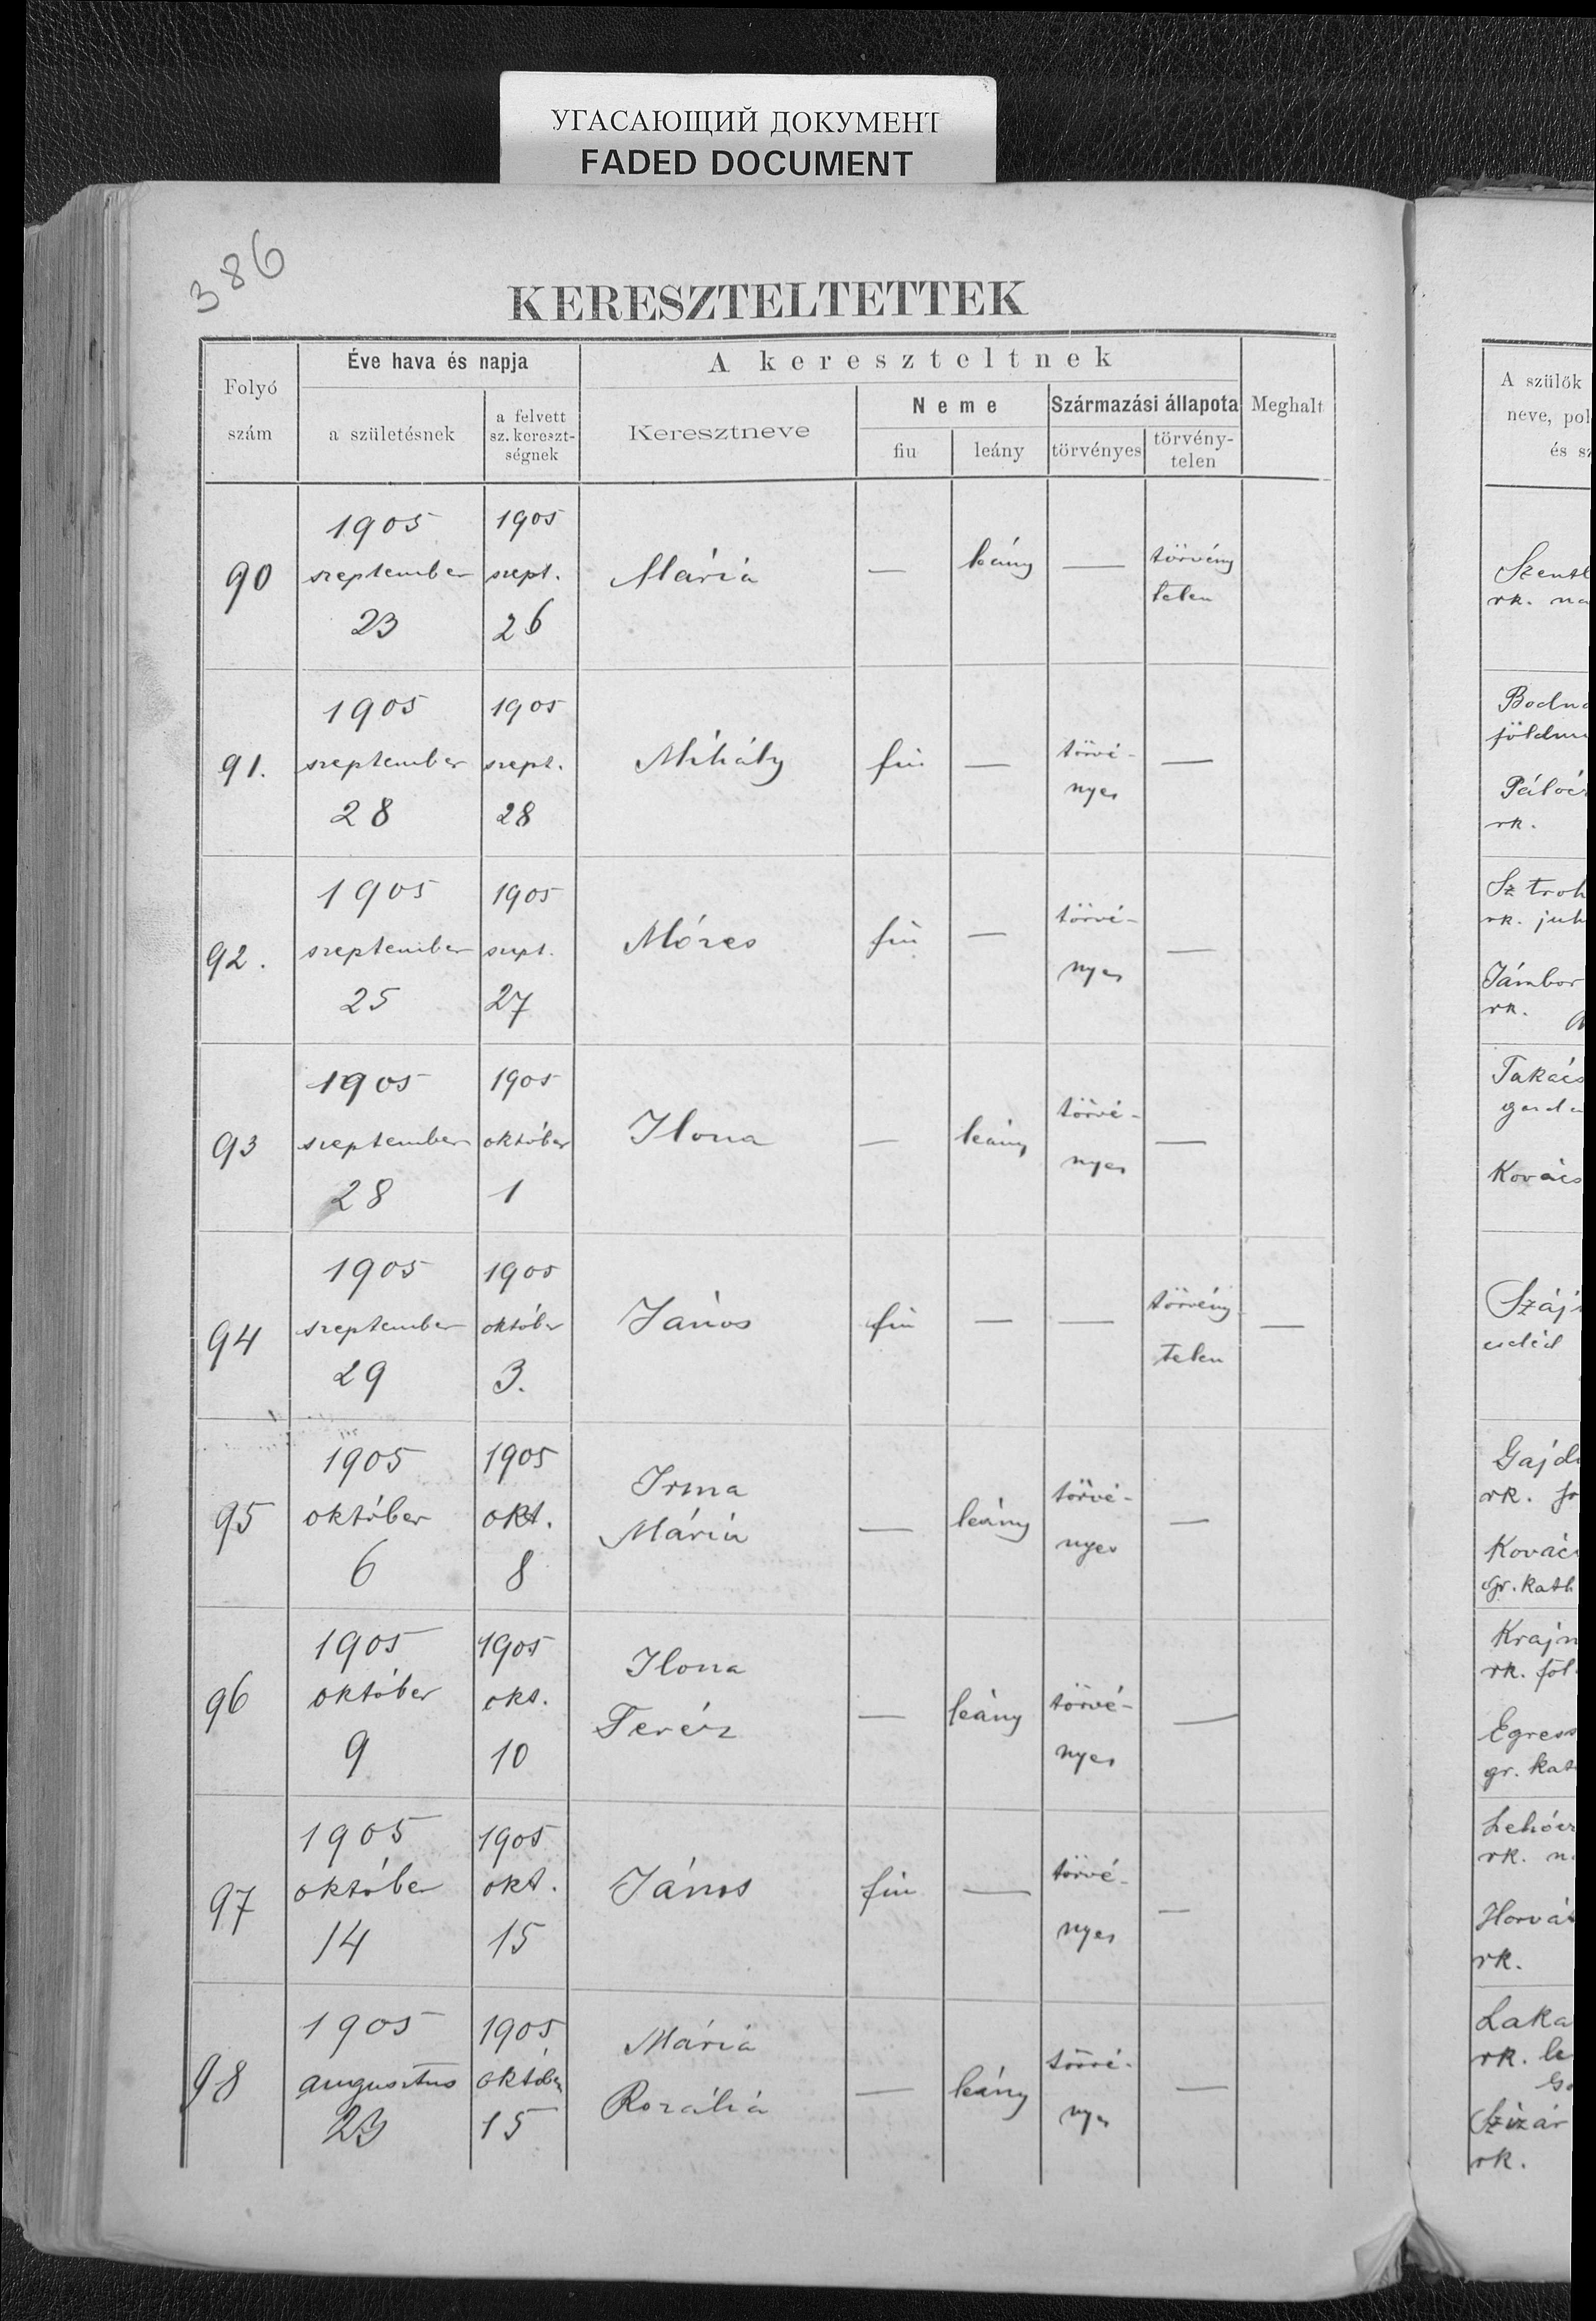 УГАСАЮЩИЙ ДОКУМЕНТ
FADED DOCUMENT
386
KERESZTELTETTEK
Folyó szám
Éve hava és napja
a születésnek
a felvett sz. kereszt-ségnek
A kereszteltnek
Keresztneve
Neme
fiu
leány
Származási állapota
törvényes
törvény-telen
Meghalt
90 1905 szeptember 23 1905 szept. 26 Mária — leány — törvény telen
91. 1905 szeptember 28 1905 szept. 28 Mihály fiu — törvé-nyes —
92. 1905 szeptember 25 1905 szept. 27 Mózes fiu — törvé-nyes —
93 1905 szeptember 28 1905 október 1 Ilona — leány törvé-nyes —
94 1905 szeptember 29 1905 október 3. János fiu — — törvény-telen —
95 1905 október 6 1905 okt. 8 Irma Mária — leány törvé-nyes —
96 1905 október 9 1905 okt. 10 Ilona Teréz — leány törvé-nyes —
97 1905 október 14 1905 okt. 15 János fiu — törvé-nyes —
98 1905 augusztus 23 1905 október 15 Mária Rozália — leány törvé-nyes —
A szülők
neve, pol
és sz
Szent
rk. na
Bodn
földm
rk.
Sztroh
rk. juh
Jámbor
rk.
Takács
Kovács
Száj
cseléd
Gajd
rk.
Kovác
gr. kath
Krajn
rk. föl
Egress
gr. kat
Lehócz
rk. n
Horvá
rk.
Laka
rk. le
Szizár
rk.